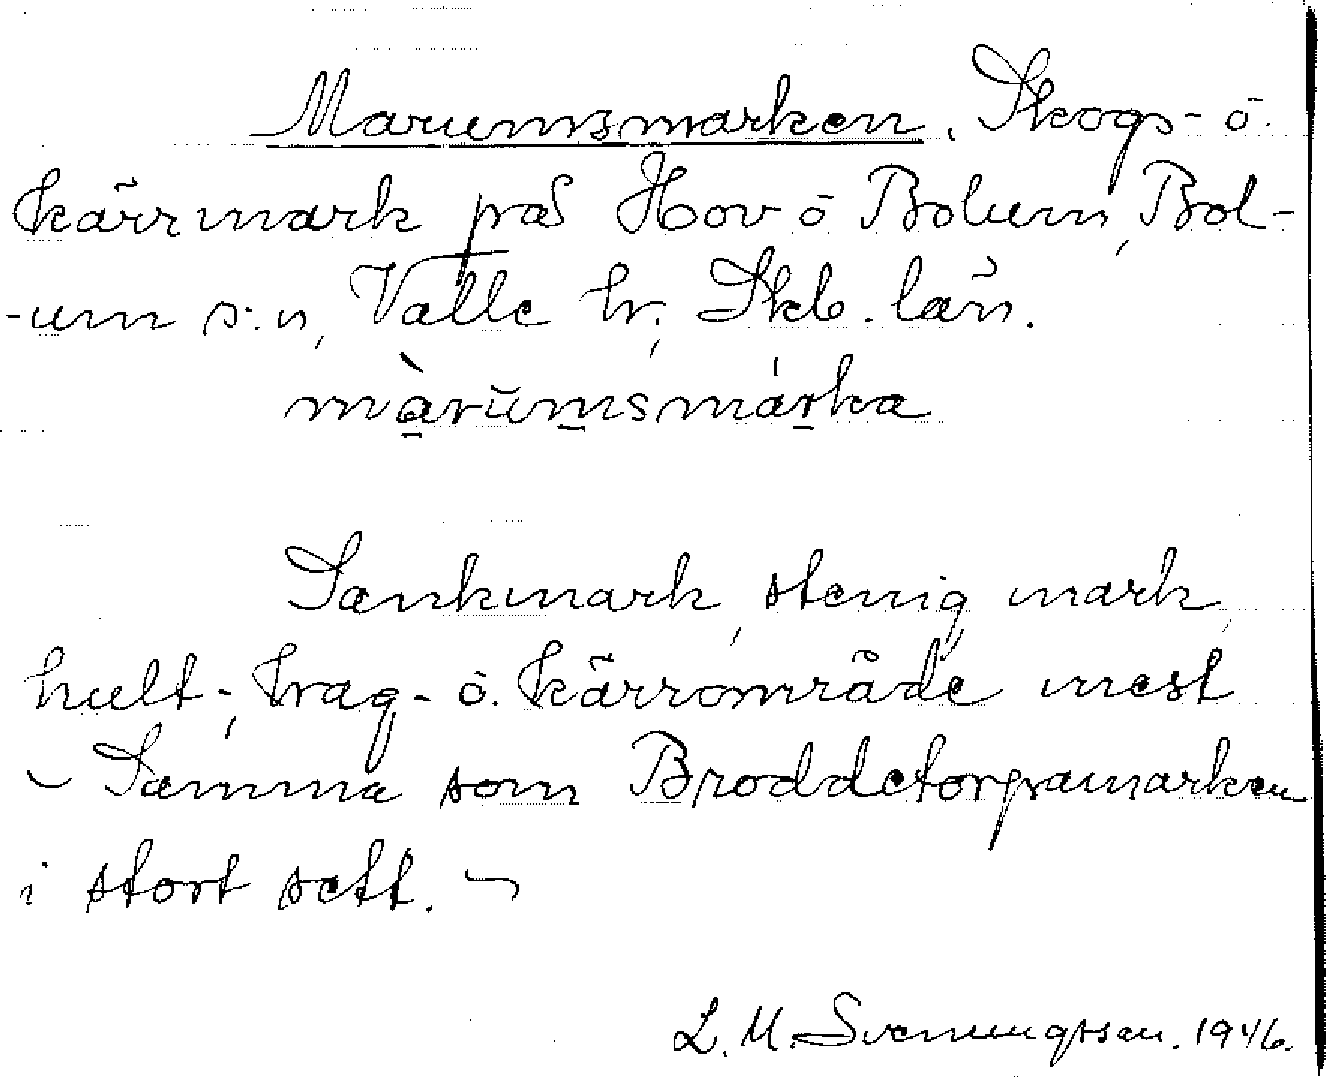 Marumsmarken. Skogs- o.
kärrmark på Hov o Bolum, Bol-
-um s:n, Valle hd, Skb. län.
màrumsmárka
Sankmark, stenig mark,
hult-, krag- o. kärrområde mest
~ Samma som Broddetorpamarken
i stort sett. ~
L. M. Svenungsson. 1946.